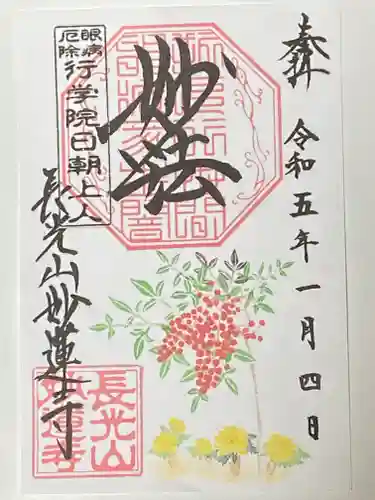 奉拝
令和五年一月四日
妙法
眼病
厄除
行学院日朝上人
長光山妙蓮寺
長光山
妙蓮寺